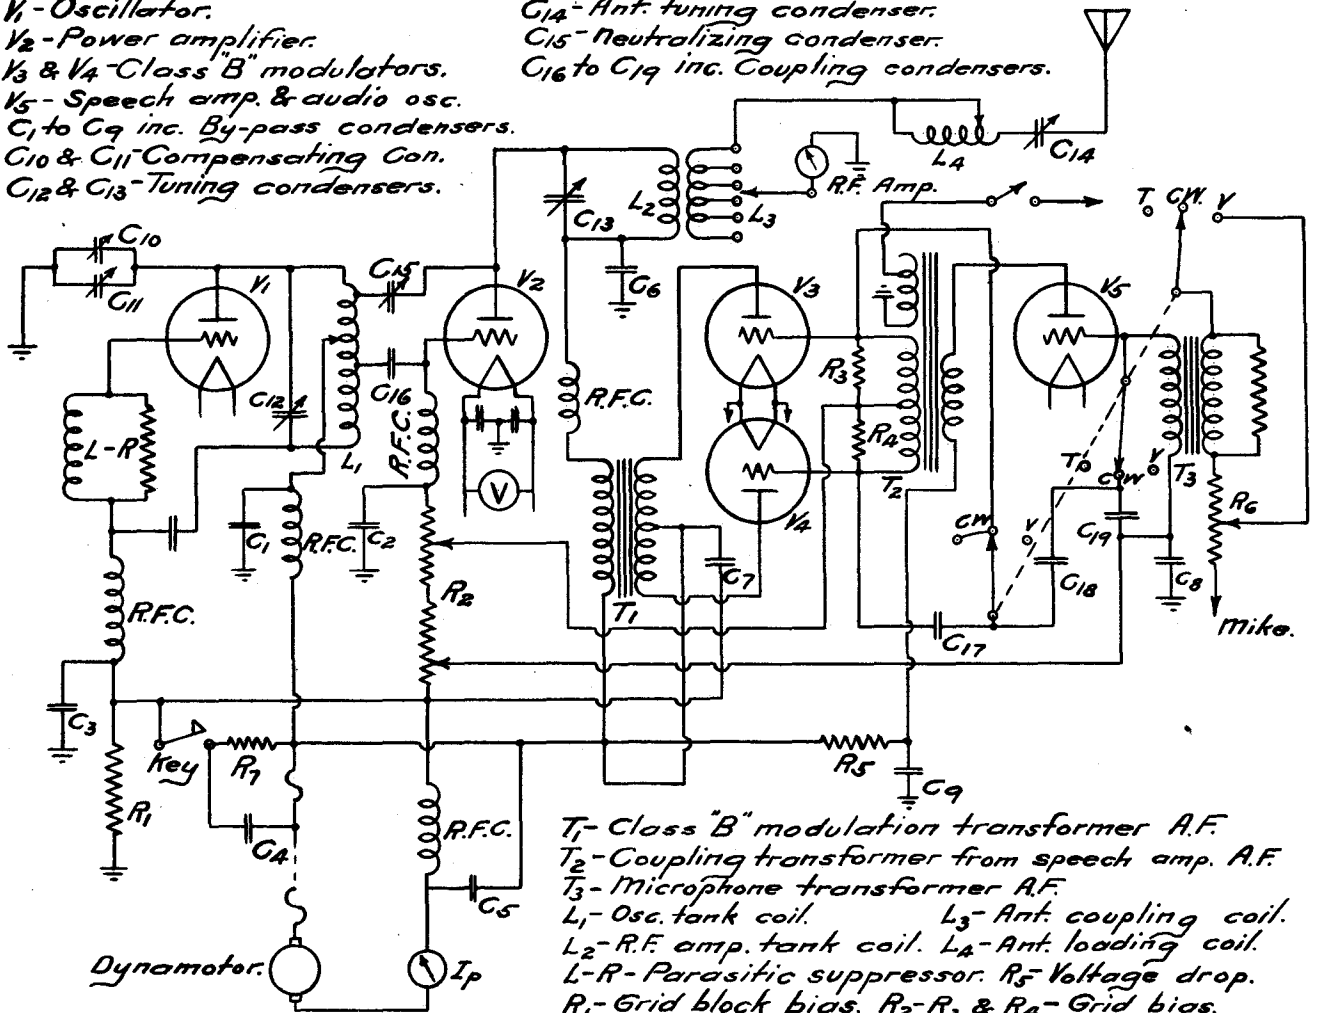 V1 - Oscillator.
V2 - Power amplifier.
V3 & V4 - Class "B" modulators.
V5 - Speech amp. & audio osc.
C1 to C9 inc. By-pass condensers.
C10 & C11 - Compensating Con.
C12 & C13 - Tuning condensers.
C14 - Ant. tuning condenser.
C15 - Neutralizing condenser.
C16 to C19 inc. Coupling condensers.
L4
C14
R.F. Amp.
L2
L3
C13
C6
T CW. V
C10
C11
V1
C15
V2
V3
V5
C12
C16
R.F.C.
R.F.C.
R3
R4
L-R
L1
V
T2
V4
T
CW
V
T3
R6
C1
R.F.C.
C2
R2
T1
C7
CW
V
C19
C18
C8
R.F.C.
C17
Mike.
C3
Key
R7
R5
C9
R1
C4
R.F.C.
C5
Dynamotor.
Ip
T1 - Class "B" modulation transformer A.F.
T2 - Coupling transformer from speech amp. A.F.
T3 - Microphone transformer A.F.
L1 - Osc. tank coil. L3 - Ant. coupling coil.
L2 - R.F. amp. tank coil. L4 - Ant. loading coil.
L-R - Parasitic suppressor. R5 - Voltage drop.
R1 - Grid block bias. R2 - R3 & R4 - Grid bias.